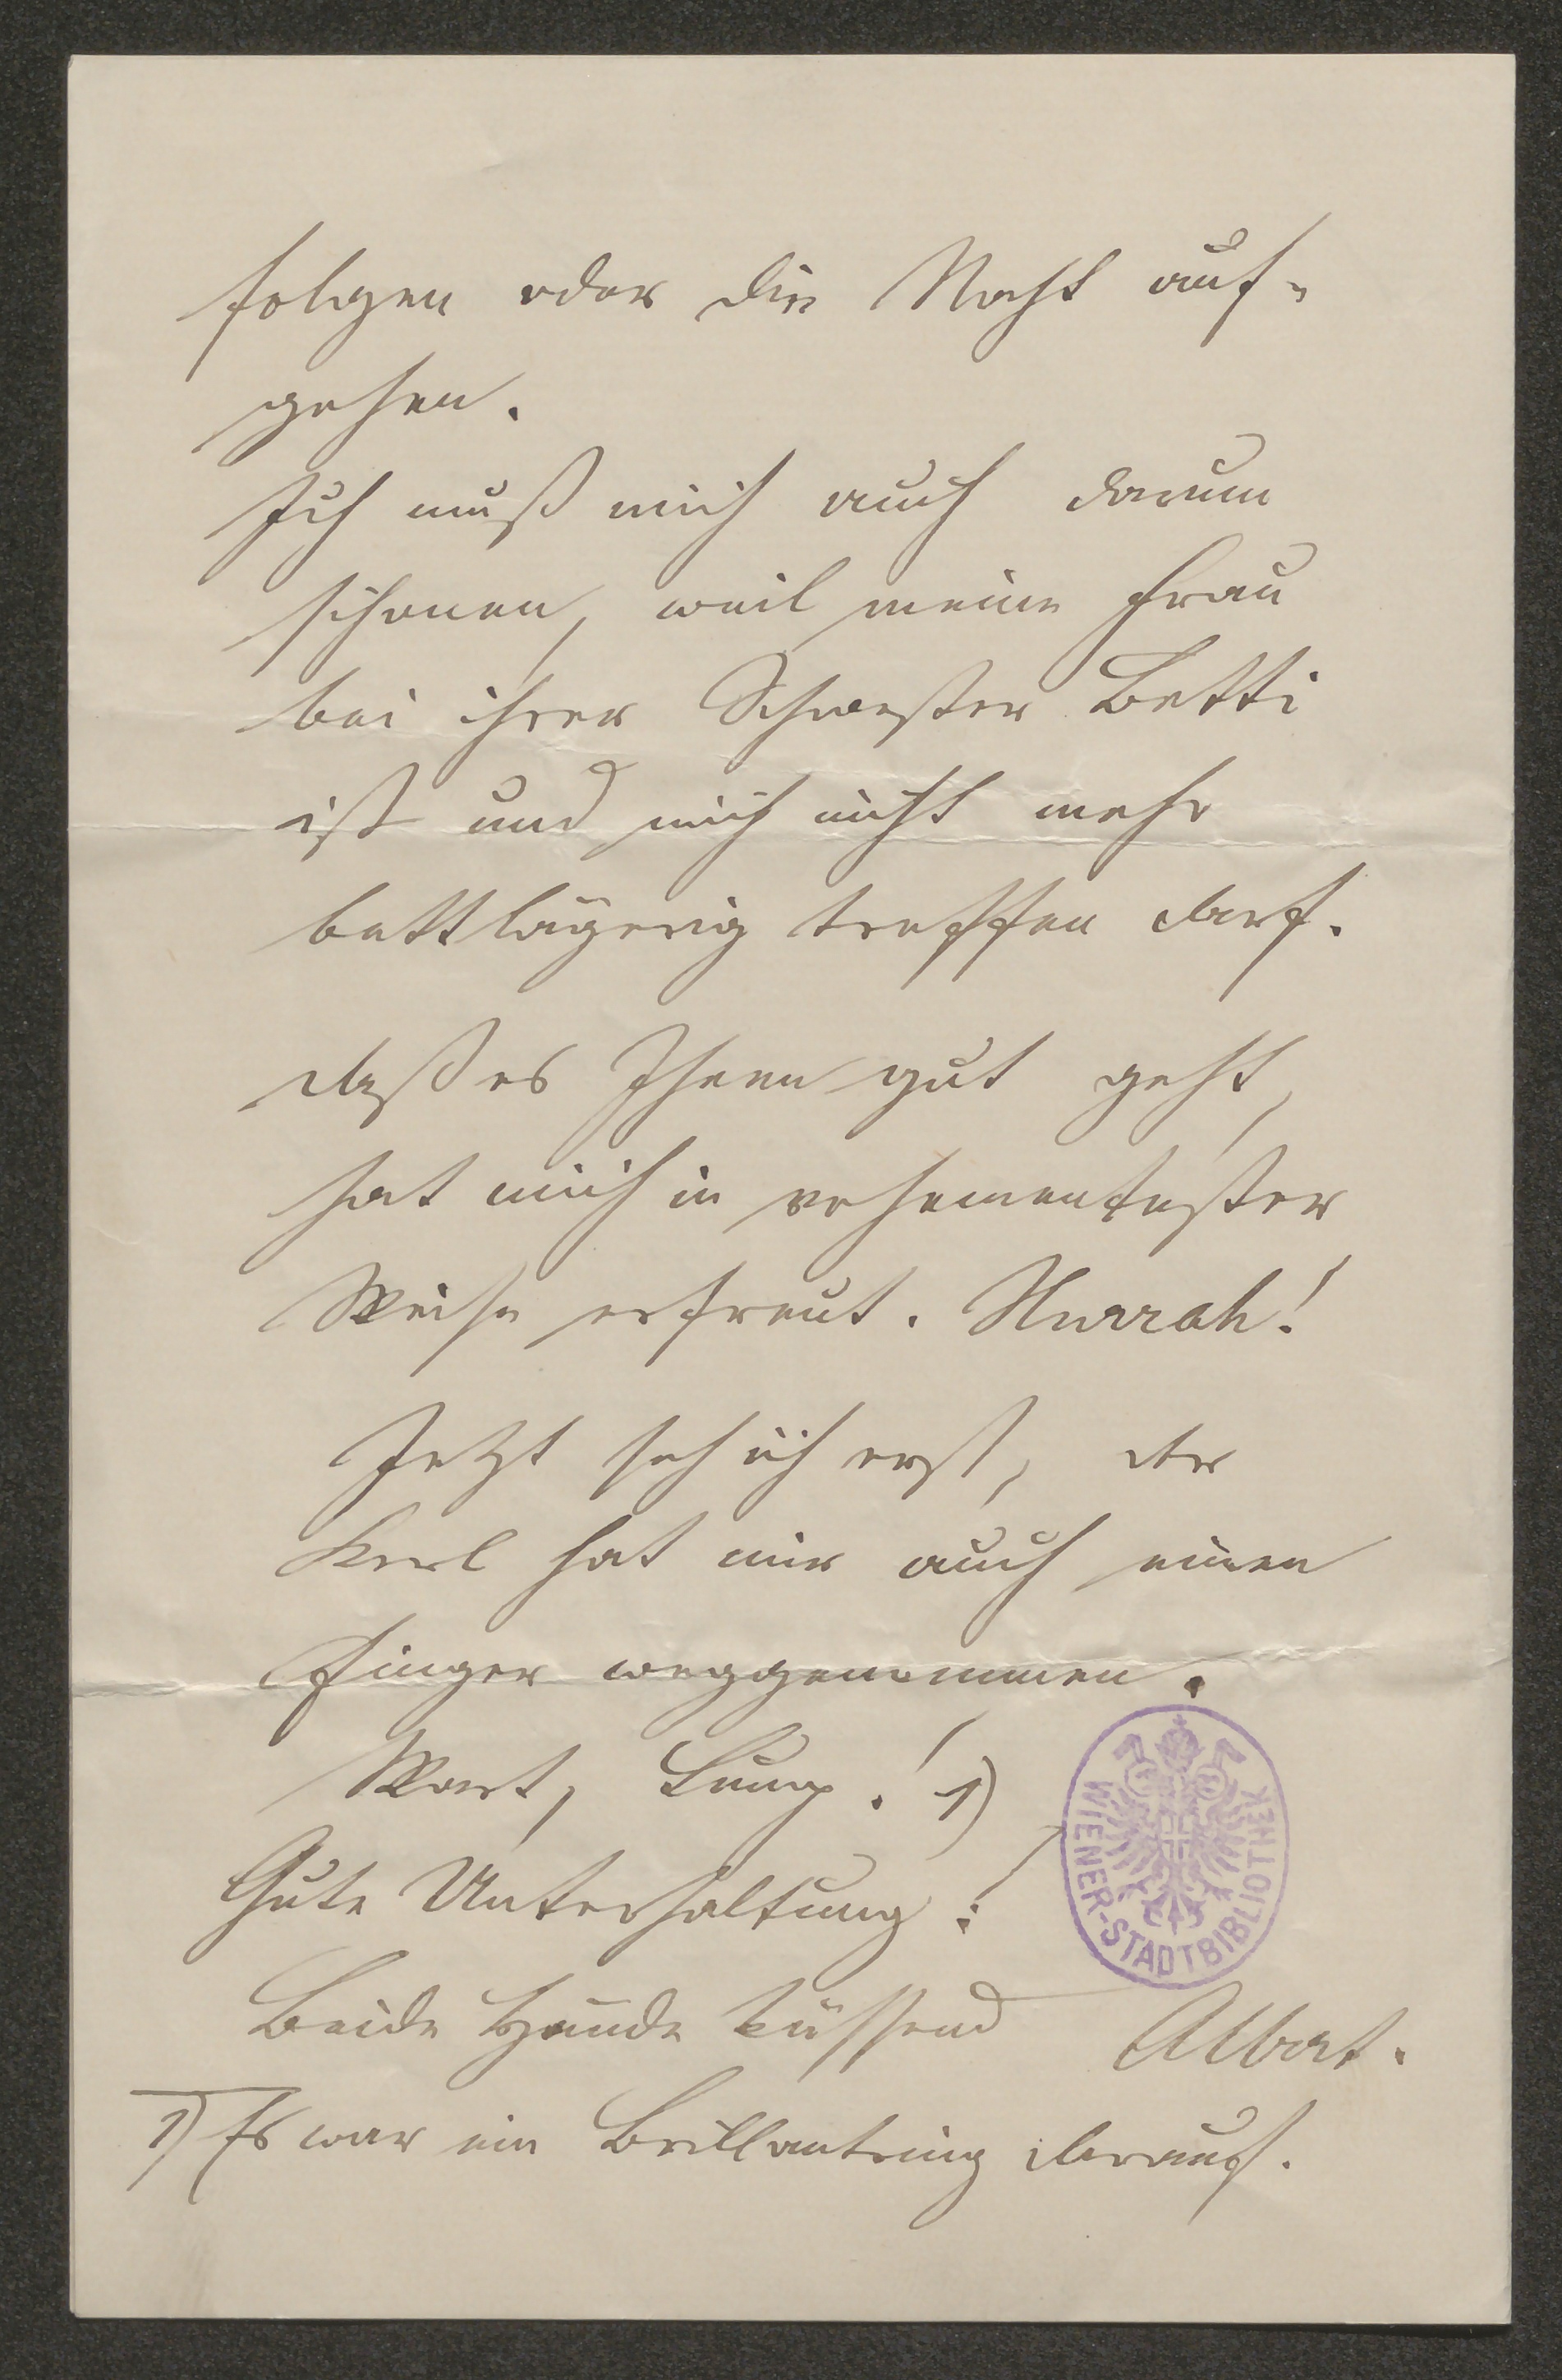 folgen oder die Nacht auf-
gehen.
Ich muß mich auch darum
schonen, weil meine Frau
bei ihrer Schwester Betti
ist und mich nicht mehr
bettlägerig treffen darf.
Daß es Ihnen gut geht,
hat mich in vehementester
Weise erfreut. Hurrah!
Jetzt seh ich erst, der
Kerl hat mir auch einen
Finger weggenommen.
Wart, Lump! 1)
Gute Unterhaltung!
Beide Hände küssend Albert.
1) Es war ein Brillantring darauf.
WIENER-STADTBIBLIOTHEK